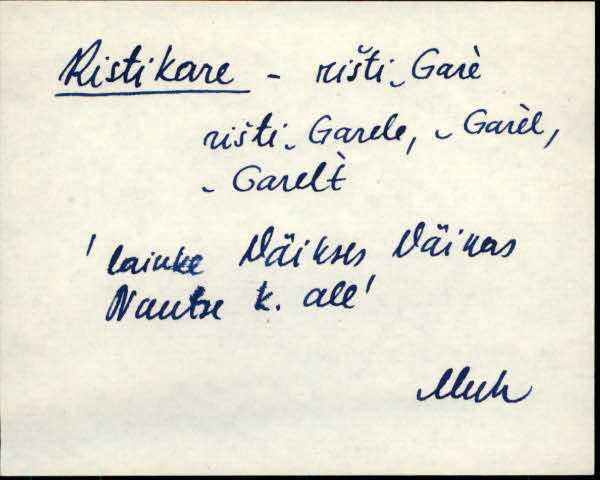 Ristikare - rišti‿Garè
rišti‿Garele, ‿Garèl,
‿Garelt̀
'laiuke Väikses Väinas
Nautse k. all'
Muh